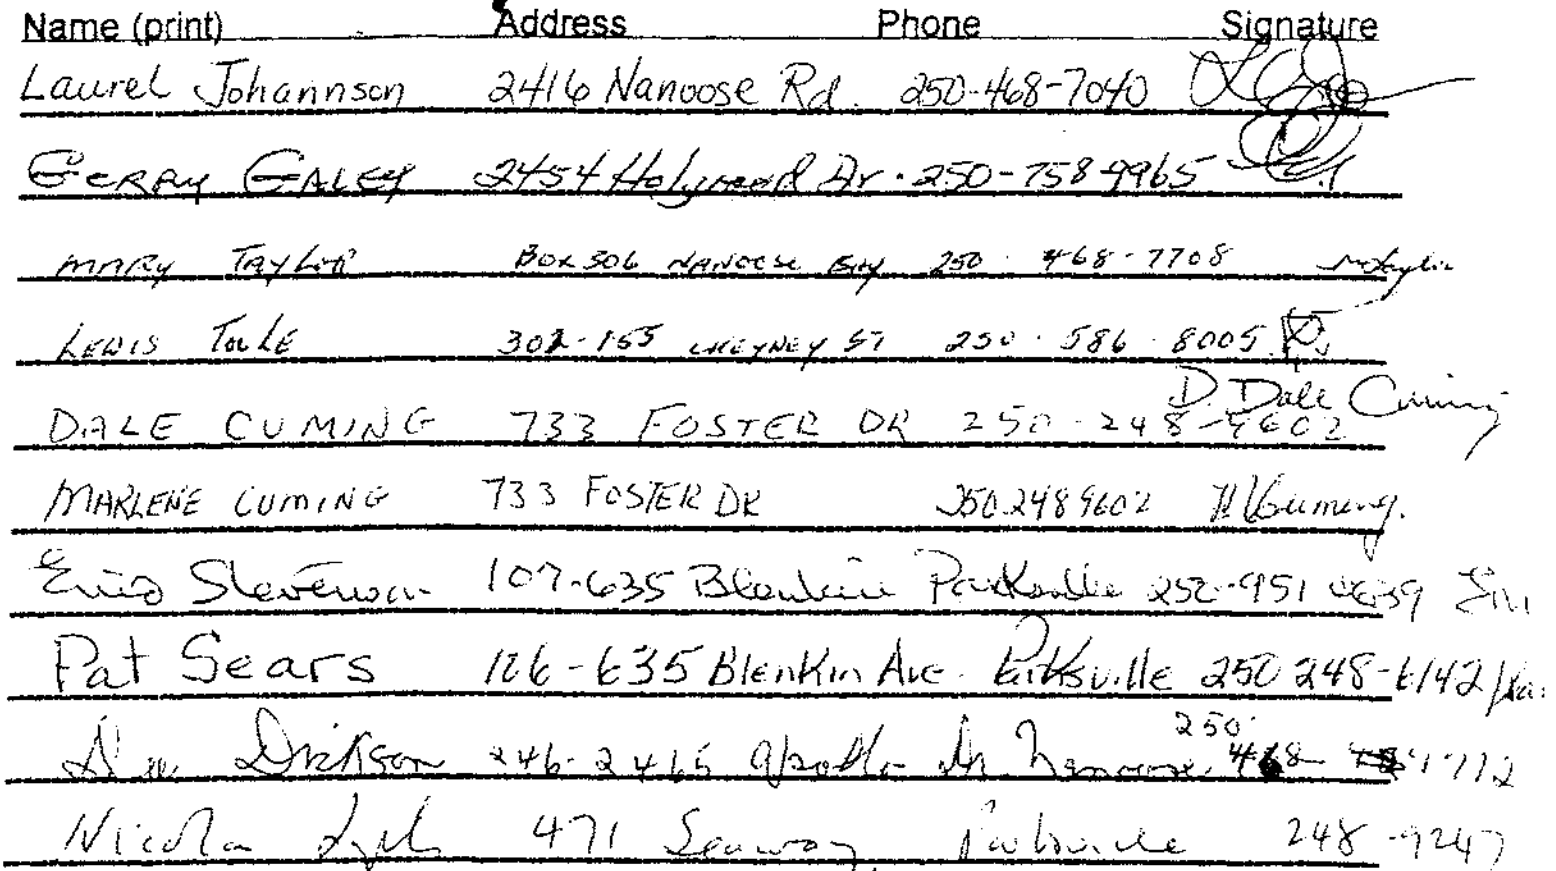 Name (print) Address Phone Signature
Laurel Johannson 2416 Nanoose Rd. 250-468-7040
GERRY GALEY 2454 Holywood Dr. 250-758-9965
MARY TAYLOR BOX 306 NANOOSE BAY 250 468-7708 MTaylor
LEWIS TOLLE 302-155 CHEYNEY ST 250 586 8005
D. Dale Cuming
DALE CUMING 733 FOSTER DR 250-248-9602
MARLENE CUMING 733 FOSTER DR 250 248 9602 M Cuming
Enid Stevenson 107-635 Blenkin Parksville 250-951
Pat Sears 106-635 Blenkin Ave. Parksville 250 248-6142
250
Dickson 246-2465 Apollo Dr. Nanoose 468
Nicola 471 Seaway Parksville 248-9247